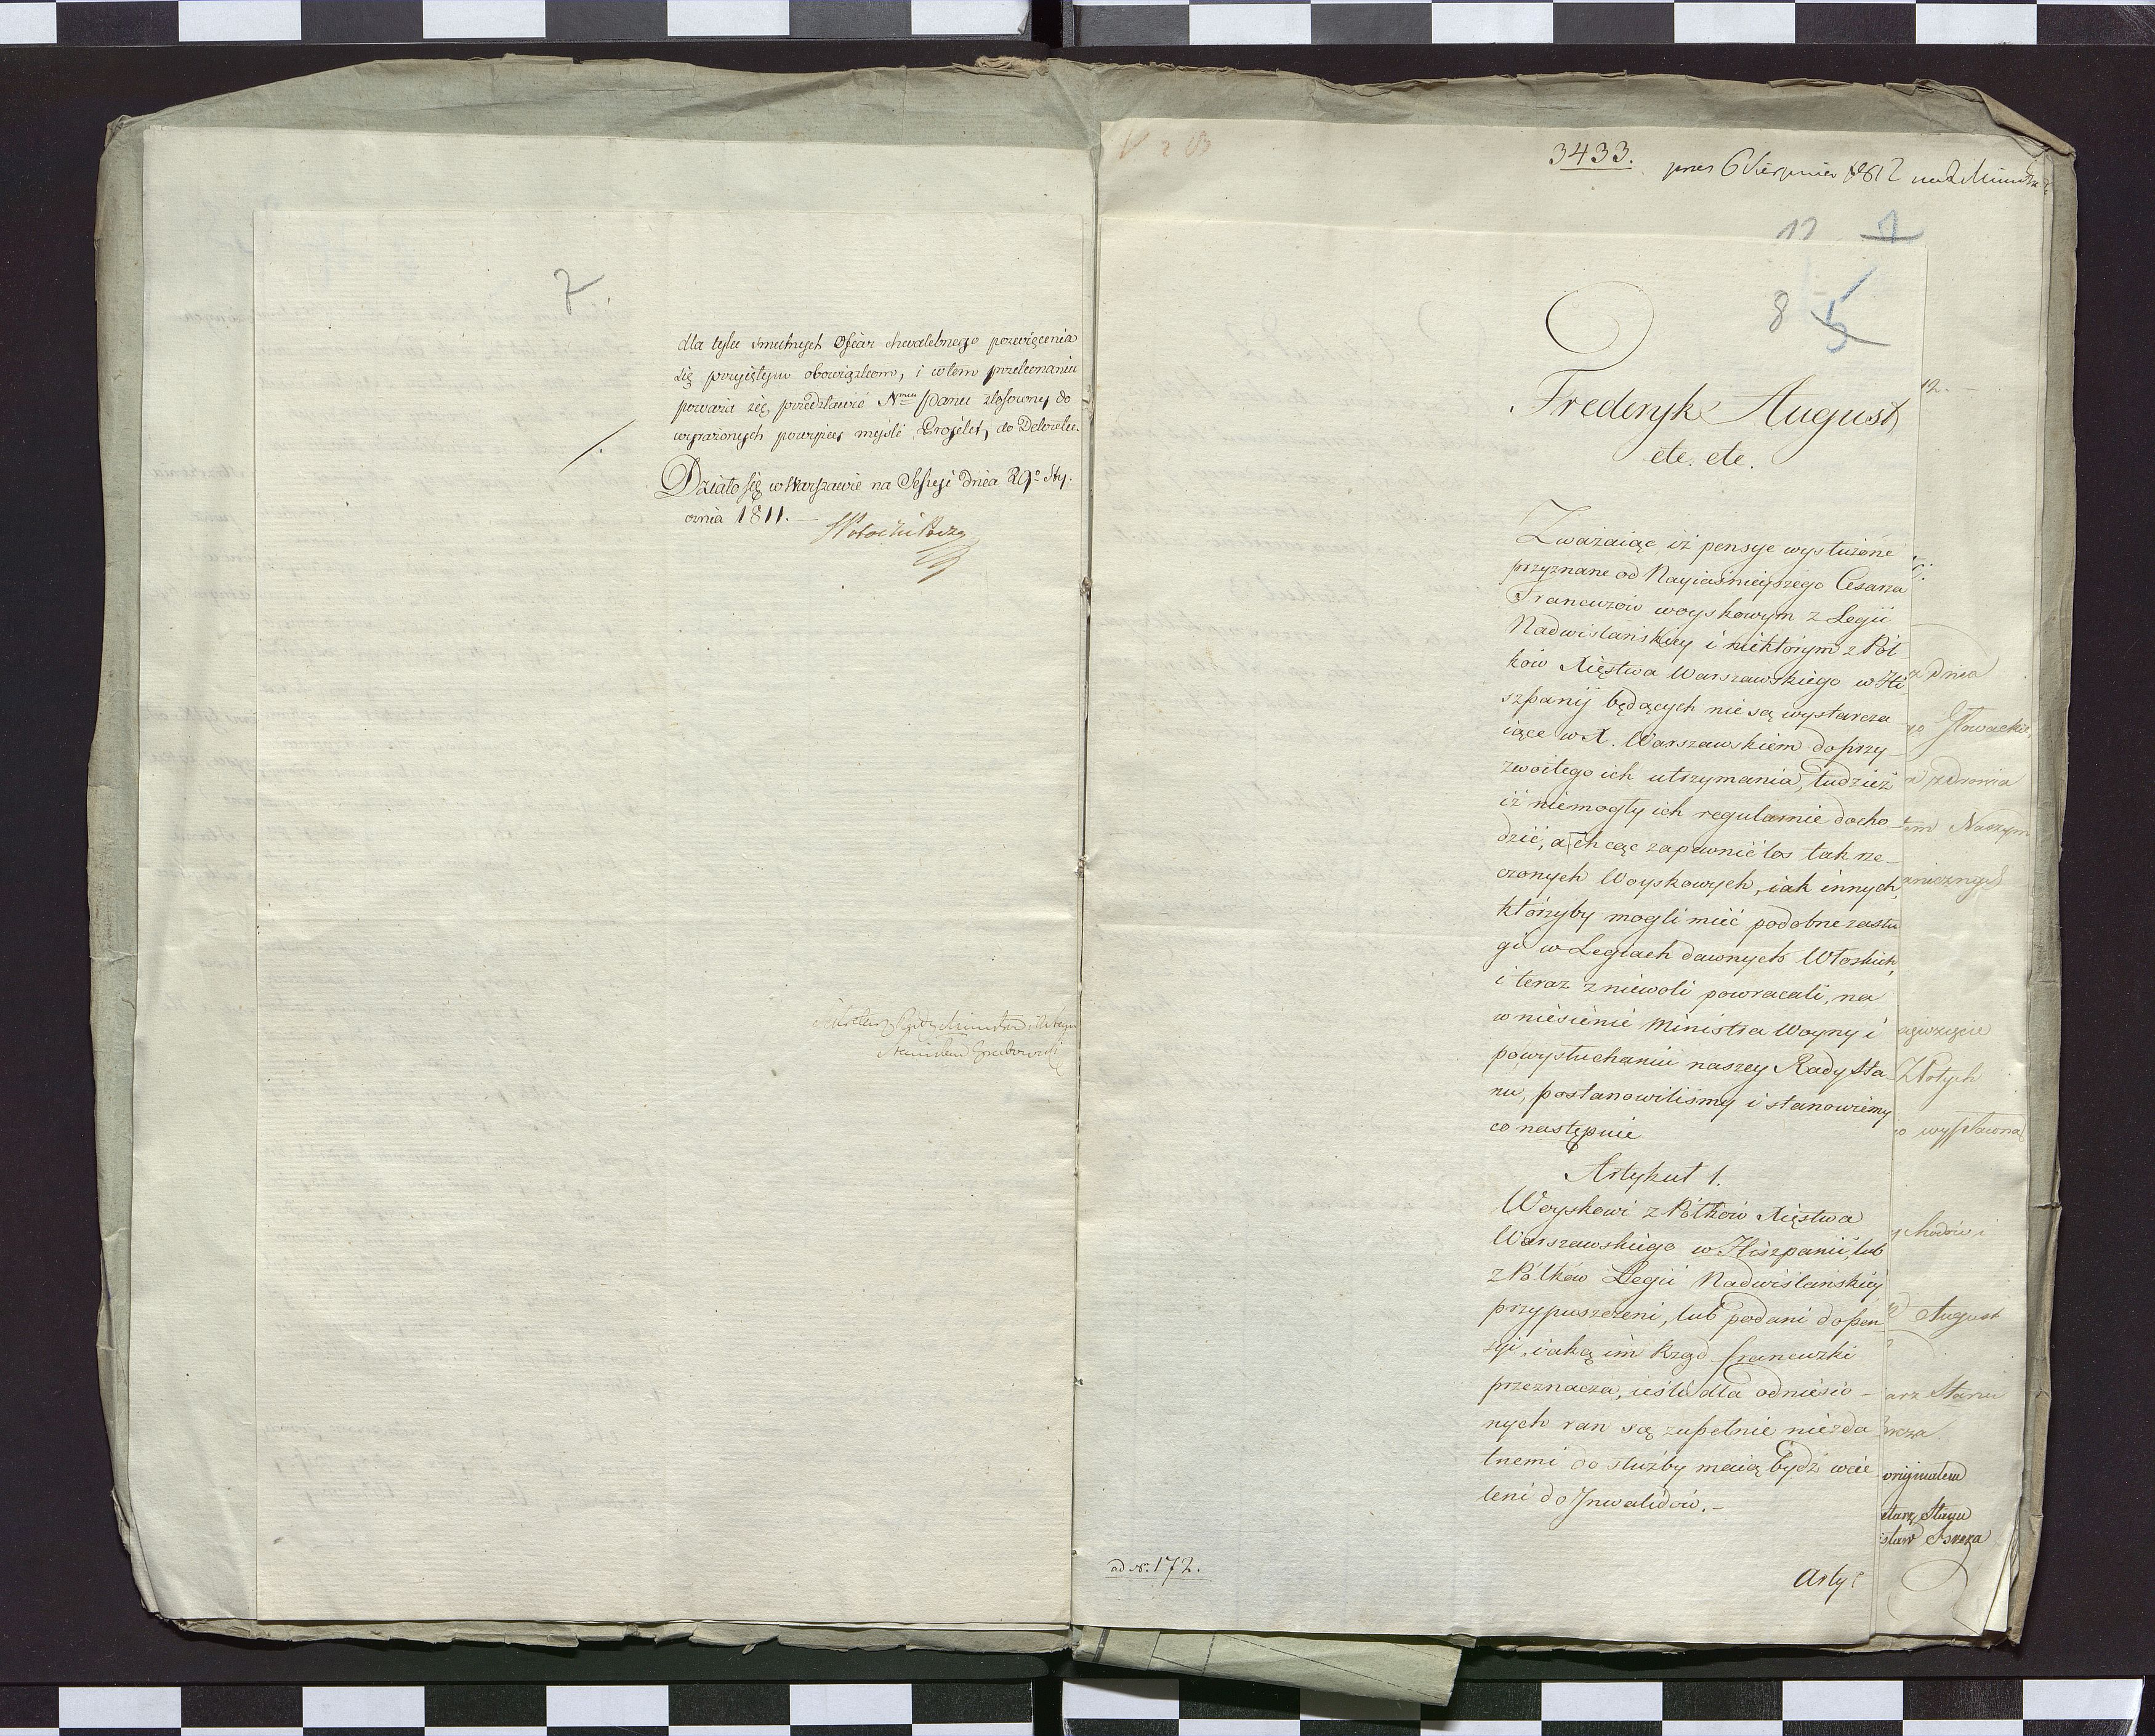 7
dla tylu smutnych Ofiar chwalebnego poswięcenia
się przyiętym obowiązkom, i w tem przekonaniu
poważa się przedstawić Nmu Panu stosowny do
wyrażonych powyżey myśli Projekt, do Dekretu.
Działo się w Warszawie na Sessyi dnia 29º Sty-
cznia 1811. —
Stanisław Grabowski
3433.
6 Sierpnia 1812
12
8 5
Fryderyk August
etc. etc.
Zważaiąc iż pensye wysłużone
przyznane od Nayiaśnieyszego Cesarza
Francuzow woyskowym z Legii
Nadwislańskiey i niektórym z Pół-
kow Xięstwa Warszawskiego w Hi
szpanij będących nie są wystarcza
iące w X. Warszawskiem do przy-
zwoitego ich utrzymania, tudzież
iż niemogły ich regularnie docho-
dzić, a chcąc zapewnić los tak rze-
czonych Woyskowych, iak innych,
którzyby mogli mieć podobne zasłu
gi w Legiach dawnych Włoskich,
i teraz z niewoli powracali, na
wniesienie Ministra Woyny i
po wysłuchaniu naszey Rady Sta
nu, postanowiliśmy i stanowiemy
co następuie
Artykuł 1.
Woyskowi z Półków Xięstwa
Warszawskiego w Hiszpanii, lub
z Półków Legii Nadwiślańskiey
przypuszczeni, lub podani do pen
syi, iaką im Rząd francuzki
przeznacza, ieśli dla odniesio-
nych ran są zupełnie niezda
tnemi do służby maią bydź wcie
leni do Inwalidów. —
Arty
ad N. 172.
12. —
dnia
zdrowia
Złotych
August
Stanu
originałem
Stanu